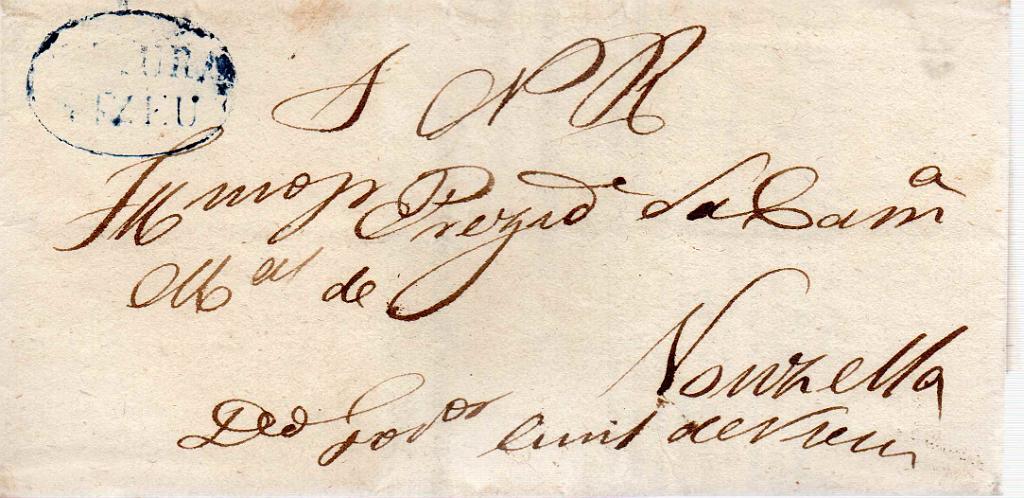 URA
VIZEU
S N R
Illmo Sr Prezide da Camª
Mal de
Vouzella
Do Govor Civil de Vizeu